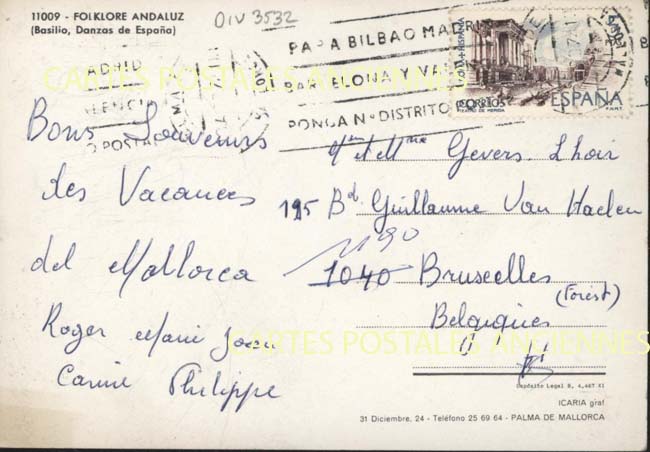 11009 - FOLKLORE ANDALUZ
(Basilio, Danzas de España)
DIV 3532
PARA BILBAO MADRID
BARCELONA Y VA
PONGA Nº DISTRITO
ADRID
LENCIA
O POSTAL
CORREOS
ESPAÑA
CARTES POSTALES ANCIENNES
Bons Souvenirs
des Vacances
del Mallorca
Roger Marie José
Carine Philippe
Mr et Mme Gevers. Lhoir
195 Bd Guillaume Van Haelen
1190
1040 Bruxelles
(Forest)
Belgique
CARTES POSTALES ANCIENNES
Depósito Legal B. 4.467 XI
ICARIA graf
31 Diciembre, 24 - Teléfono 25 69 64 - PALMA DE MALLORCA